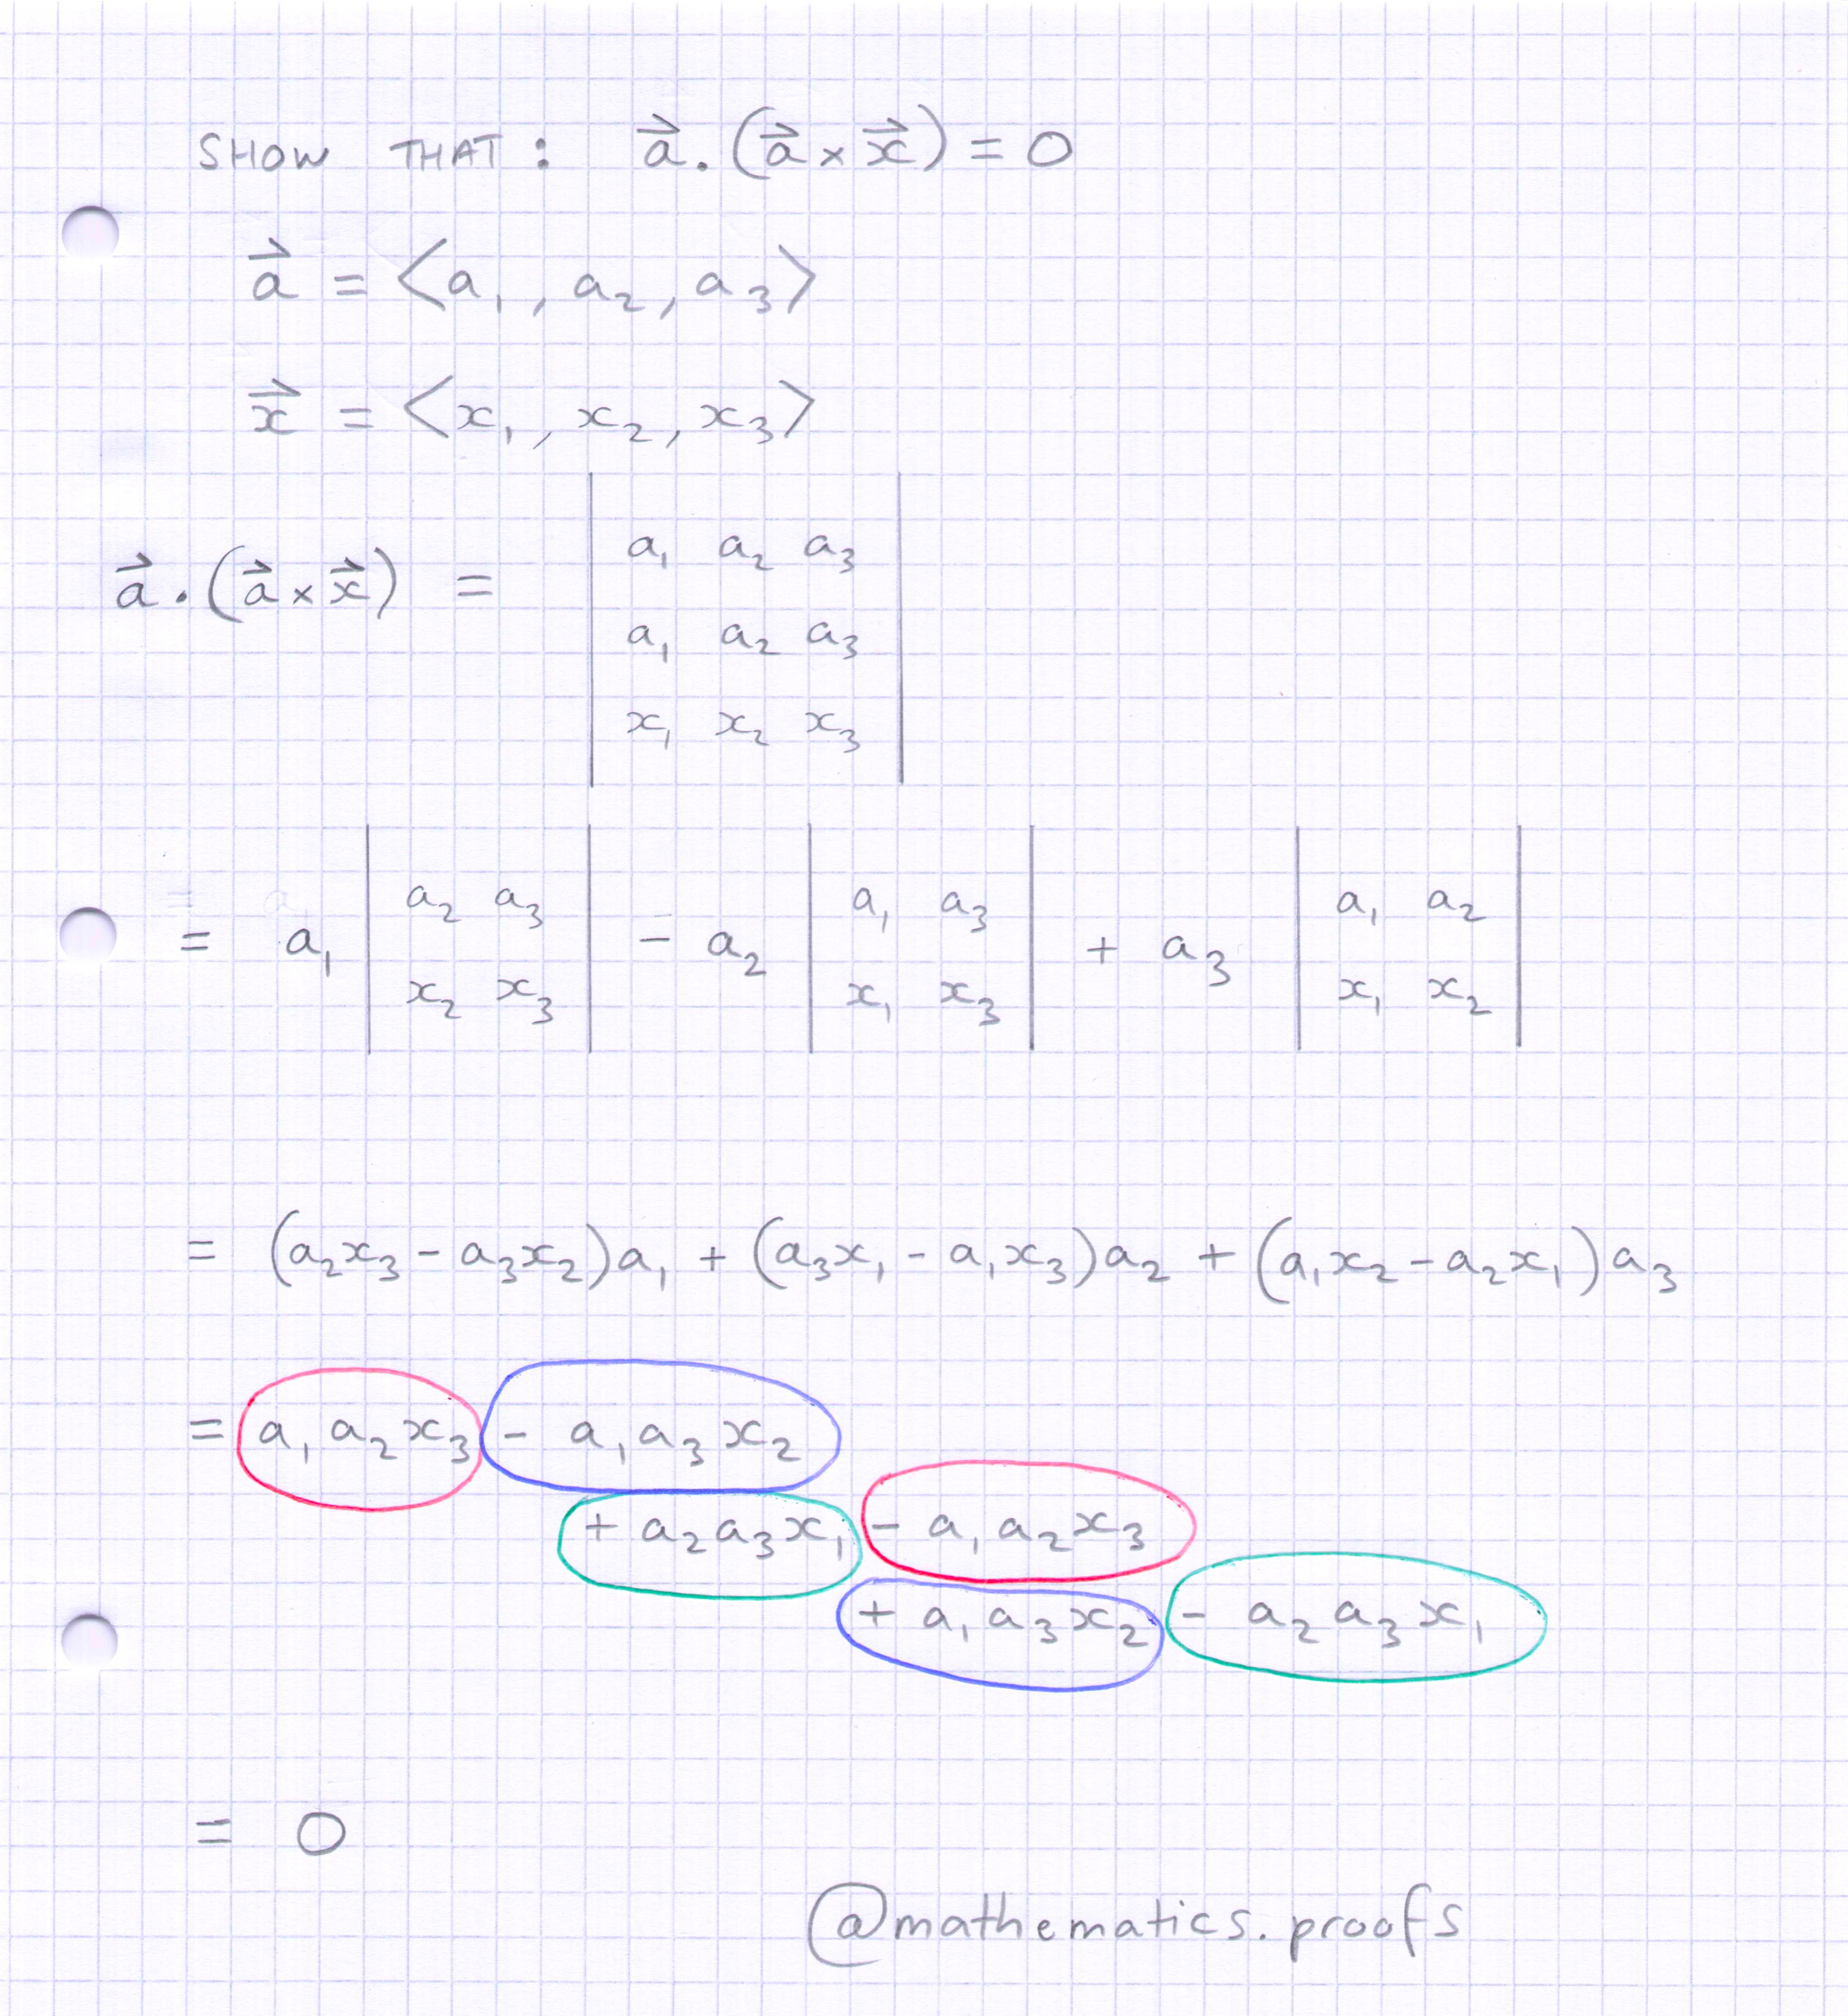 SHOW THAT: a⃗ . (a⃗ × x⃗) = 0
a⃗ = ⟨a₁, a₂, a₃⟩
x⃗ = ⟨x₁, x₂, x₃⟩
a⃗ . (a⃗ × x⃗) = | a₁ a₂ a₃ |
| a₁ a₂ a₃ |
| x₁ x₂ x₃ |
= a₁ | a₂ a₃ | − a₂ | a₁ a₃ | + a₃ | a₁ a₂ |
| x₂ x₃ | | x₁ x₃ | | x₁ x₂ |
= (a₂x₃ − a₃x₂)a₁ + (a₃x₁ − a₁x₃)a₂ + (a₁x₂ − a₂x₁)a₃
= a₁a₂x₃ − a₁a₃x₂
+ a₂a₃x₁ − a₁a₂x₃
+ a₁a₃x₂ − a₂a₃x₁
= 0
@mathematics.proofs